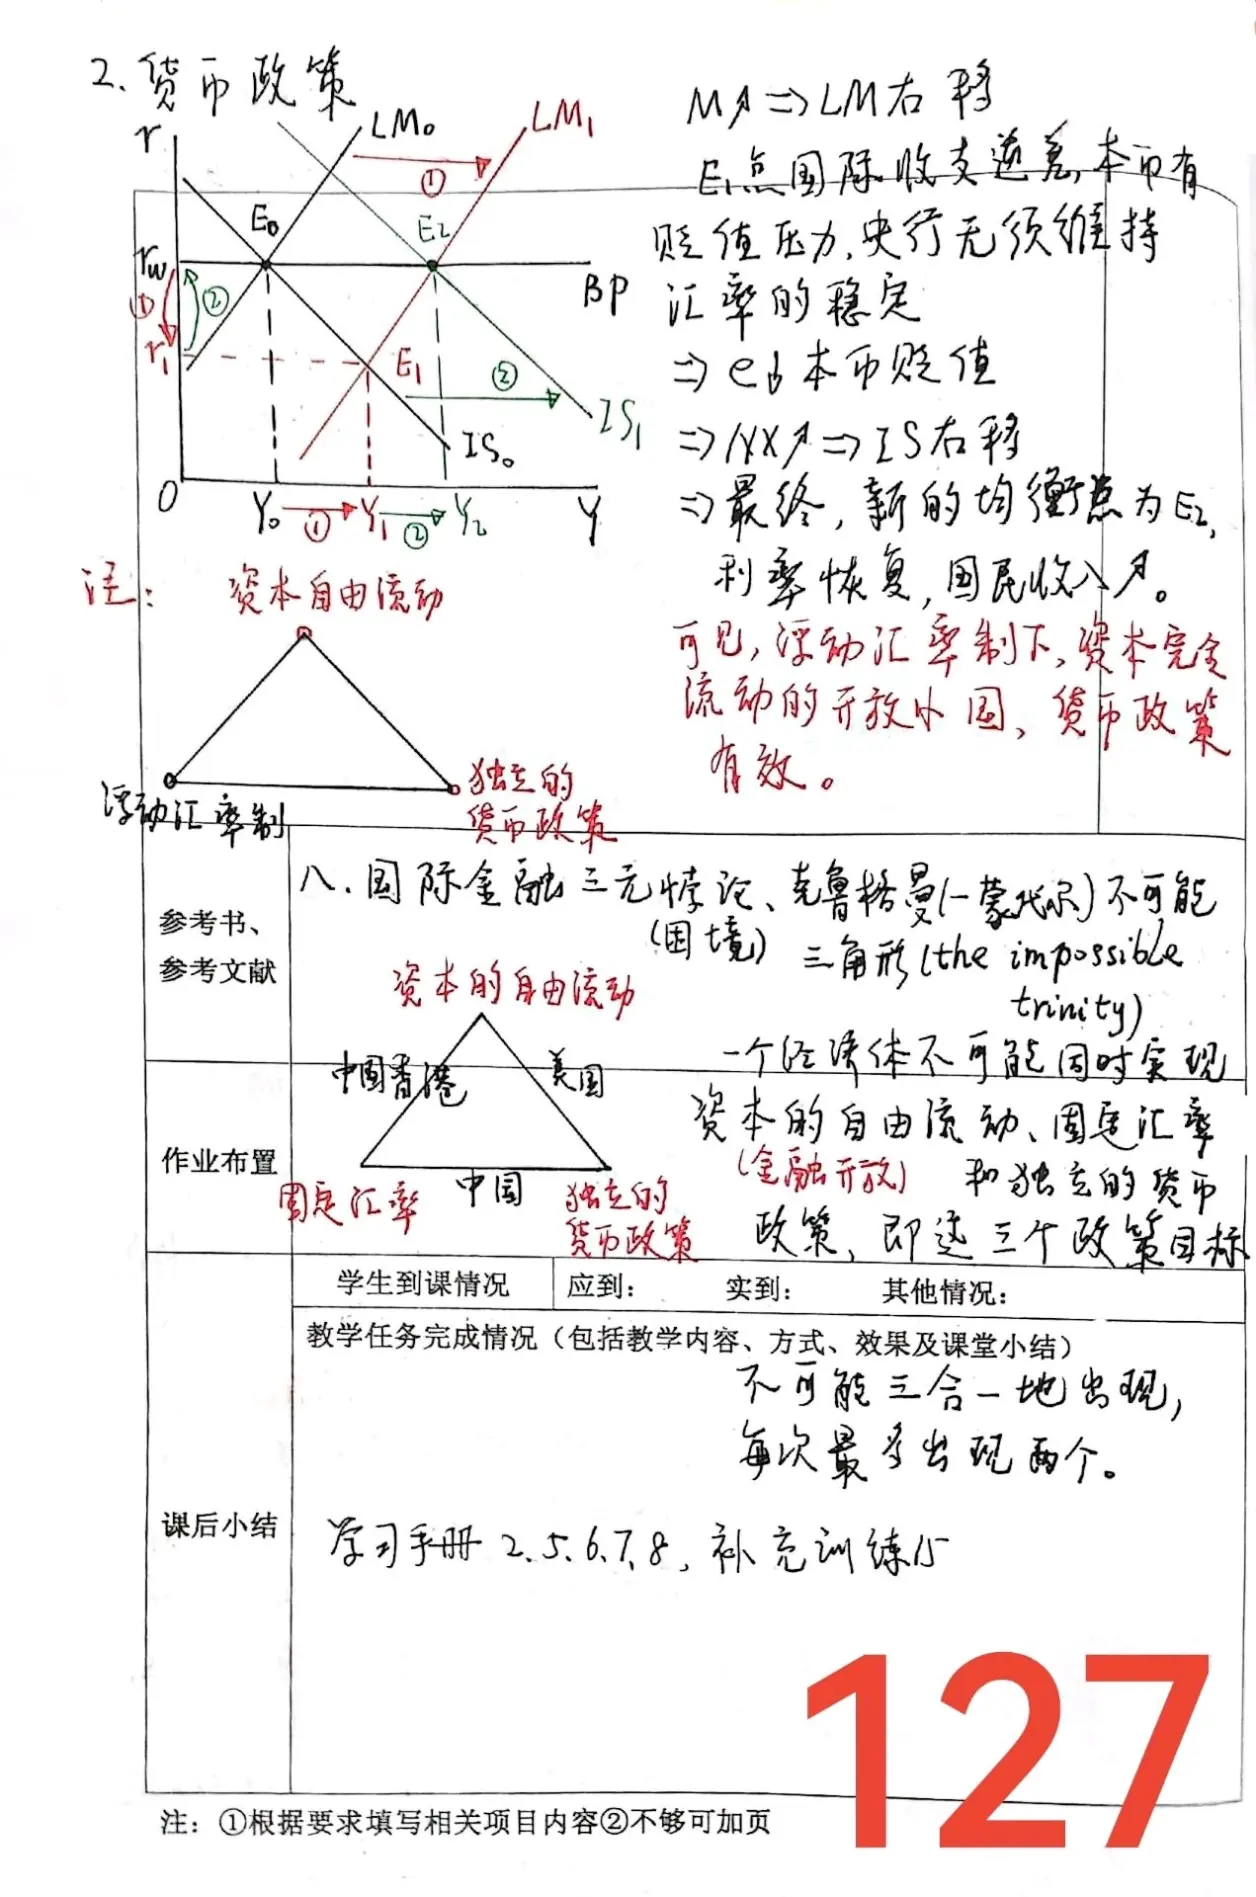 2. 货币政策
r
LM₀
LM₁
①
E₀
E₂
rw
BP
①
②
r₁
E₁
②
IS₁
IS₀
O
Y₀
①
Y₁
②
Y₂
Y
M↗⇒LM右移
E₁点国际收支逆差,本币有
贬值压力,央行无须维持
汇率的稳定
⇒e↓本币贬值
⇒NX↗⇒IS右移
⇒最终,新的均衡点为E₂,
利率恢复,国民收入↗。
可见,浮动汇率制下、资本完全
流动的开放小国、货币政策
有效。
注:
资本自由流动
浮动汇率制
独立的
货币政策
参考书、
参考文献
八.国际金融三元悖论、克鲁格曼(一蒙代尔)不可能
(困境)
三角形(the impossible
trinity)
资本的自由流动
中国香港
美国
固定汇率
中国
独立的
货币政策
一个经济体不可能同时实现
资本的自由流动、固定汇率
(金融开放)
和独立的货币
政策,即这三个政策目标
作业布置
学生到课情况
应到:
实到:
其他情况:
教学任务完成情况(包括教学内容、方式、效果及课堂小结)
不可能三合一地出现,
每次最多出现两个。
课后小结
学习手册 2.5.6.7.8,补充训练15
127
注:①根据要求填写相关项目内容②不够可加页